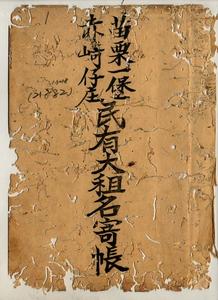 苗栗一堡
赤崎仔庄
民有大租名寄帳